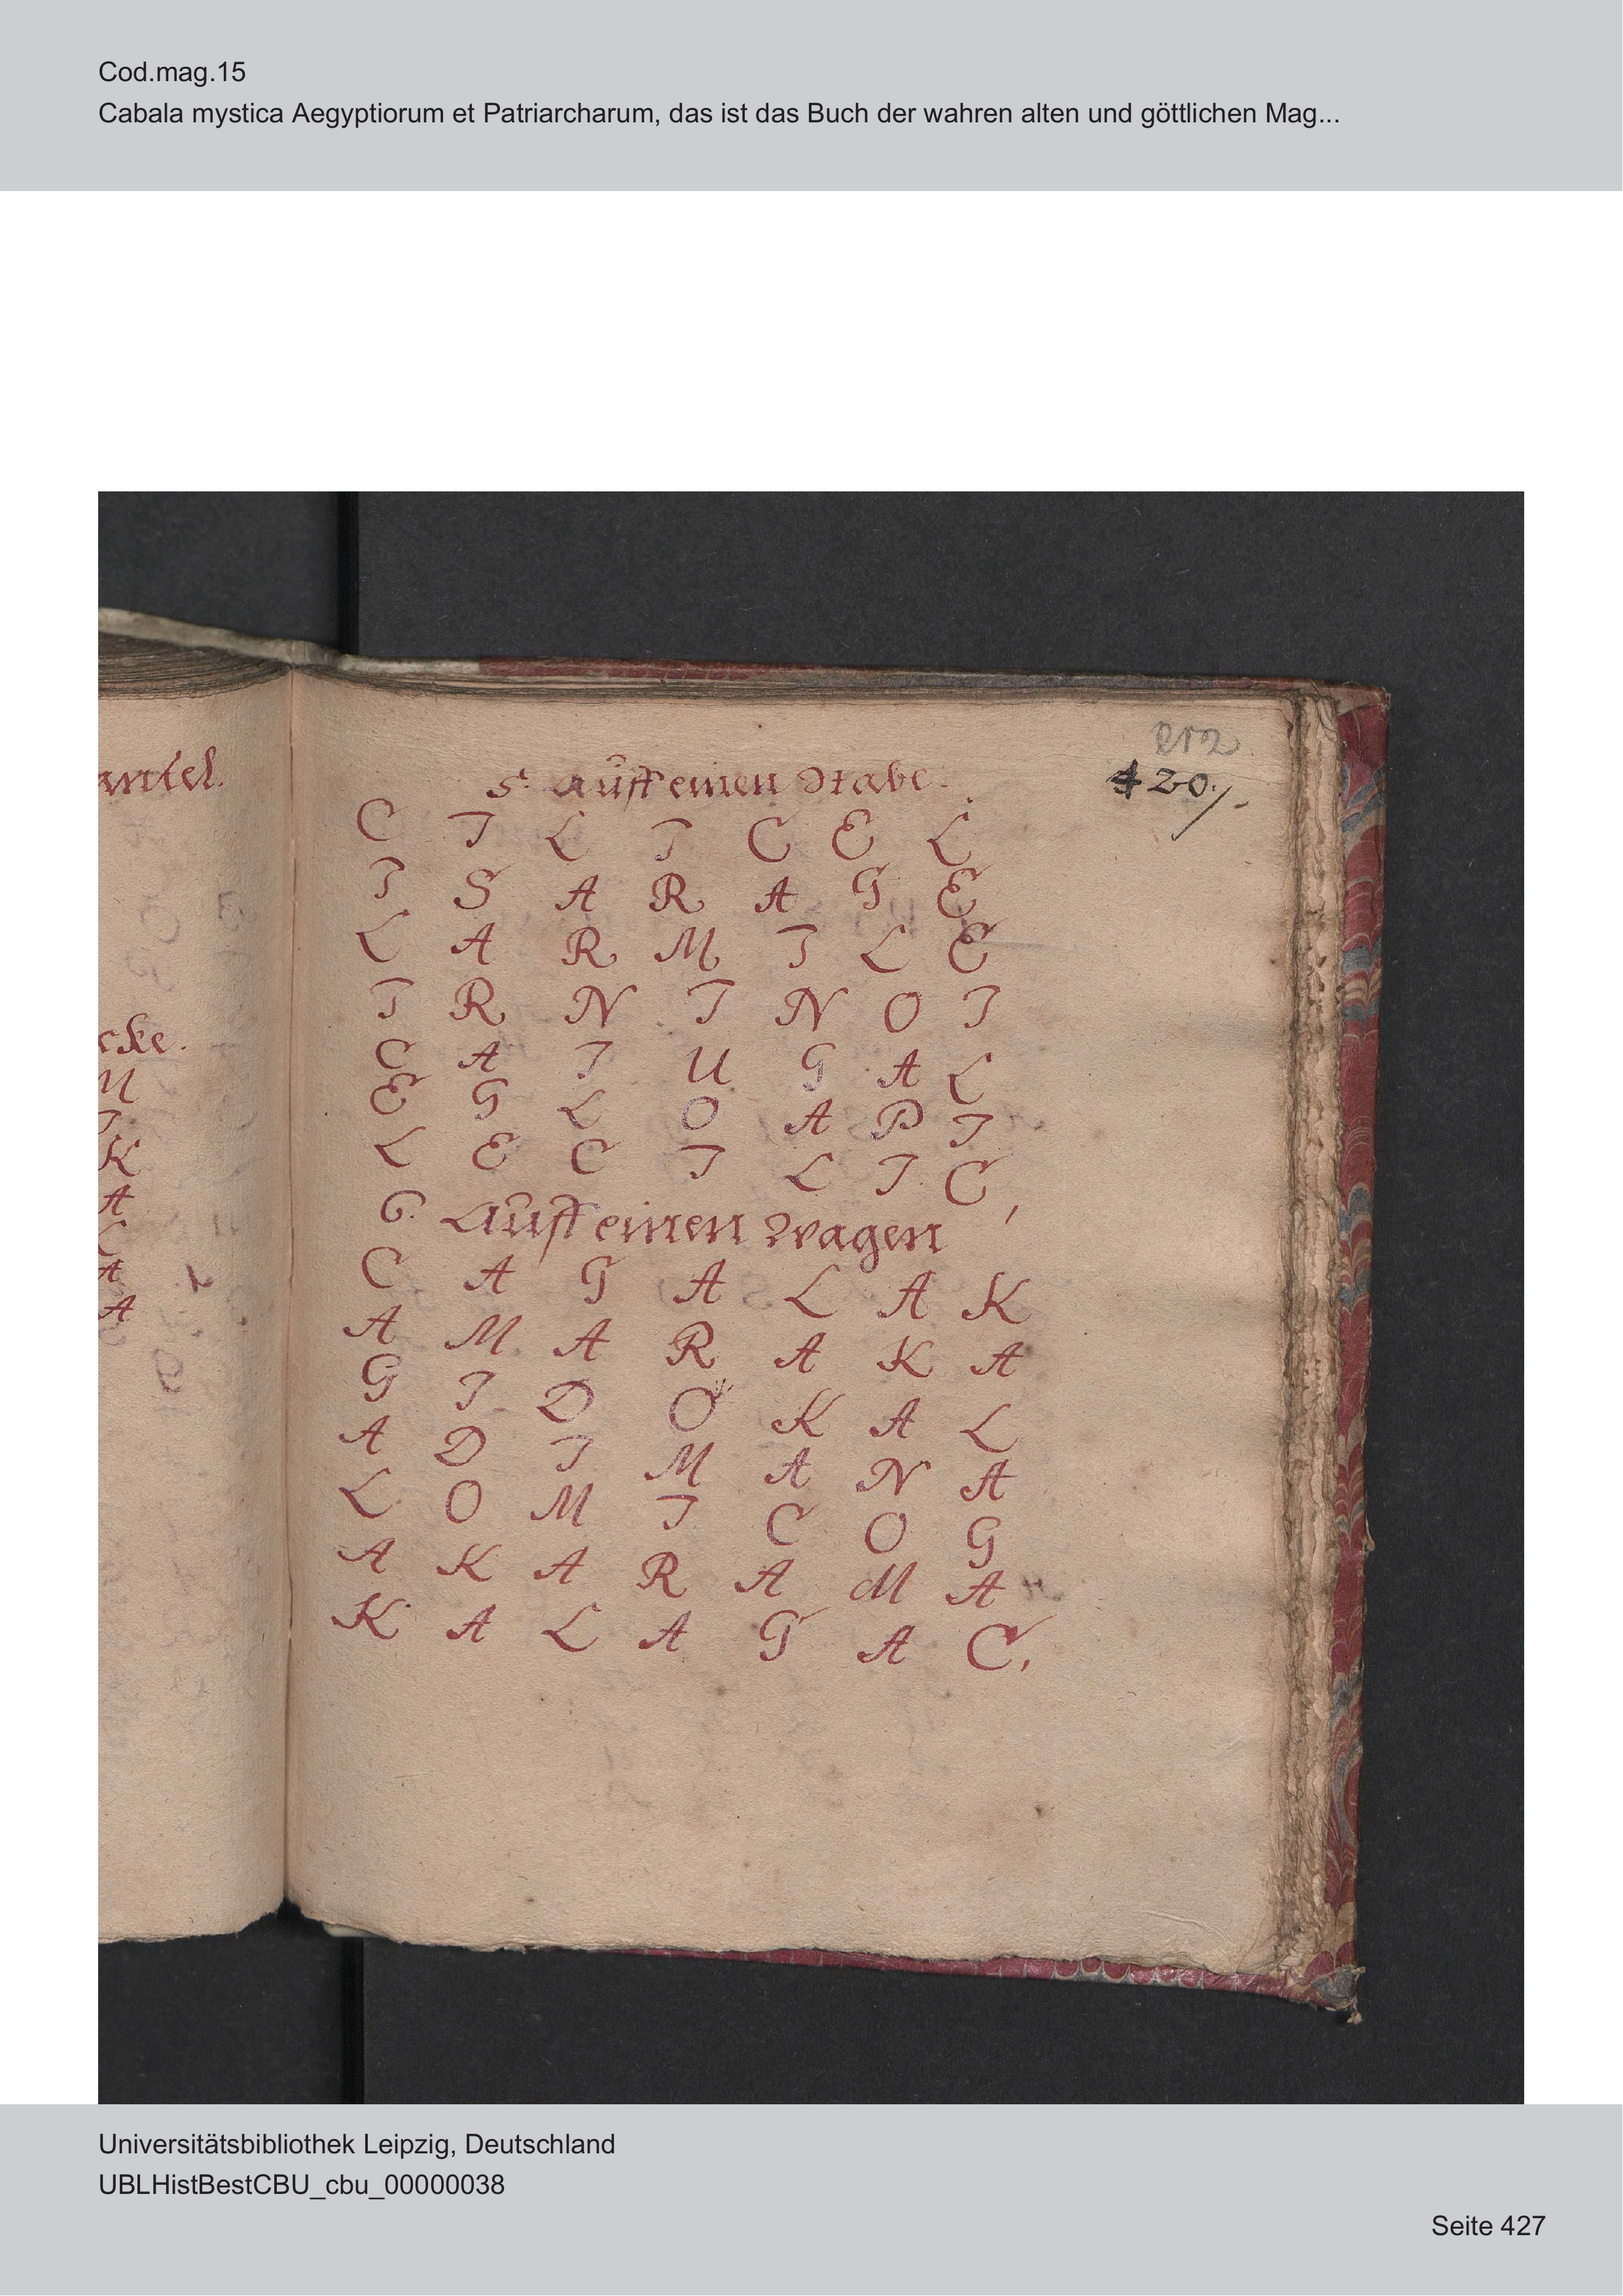 Cod.mag.15
Cabala mystica Aegyptiorum et Patriarcharum, das ist das Buch der wahren alten und göttlichen Mag...
212
420.
antel.
cke.
M
I
K
A
L
A
A
5. auff einen Stabe.
C I L I C E L
I S A R A G E
L A R M I L E
I R N I N O I
C A I U G A L
E G L O A P I
L E C I L I C,
6. Auff einen Wagen
C A G A L A K
A M A R A K A
G I D O K A L
A D I M A N A
L O M I C O G
A K A R A M A
K A L A G A C,
Universitätsbibliothek Leipzig, Deutschland
UBLHistBestCBU_cbu_00000038
Seite 427